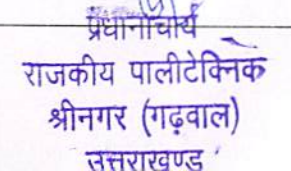 प्रधानाचार्य
राजकीय पालीटेक्निक
श्रीनगर (गढ़वाल)
उत्तराखण्ड